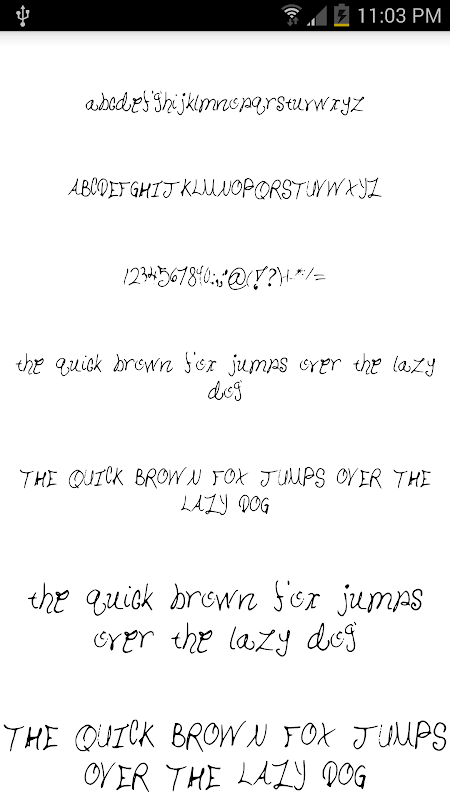 11:03 PM
abcdefghijklmnopqrstuvwxyz
ABCDEFGHIJKLMNOPQRSTUVWXYZ
1234567890:;,"@(!?)+-*/=
the quick brown fox jumps over the lazy
dog
THE QUICK BROWN FOX JUMPS OVER THE
LAZY DOG
the quick brown fox jumps
over the lazy dog
THE QUICK BROWN FOX JUMPS
OVER THE LAZY DOG